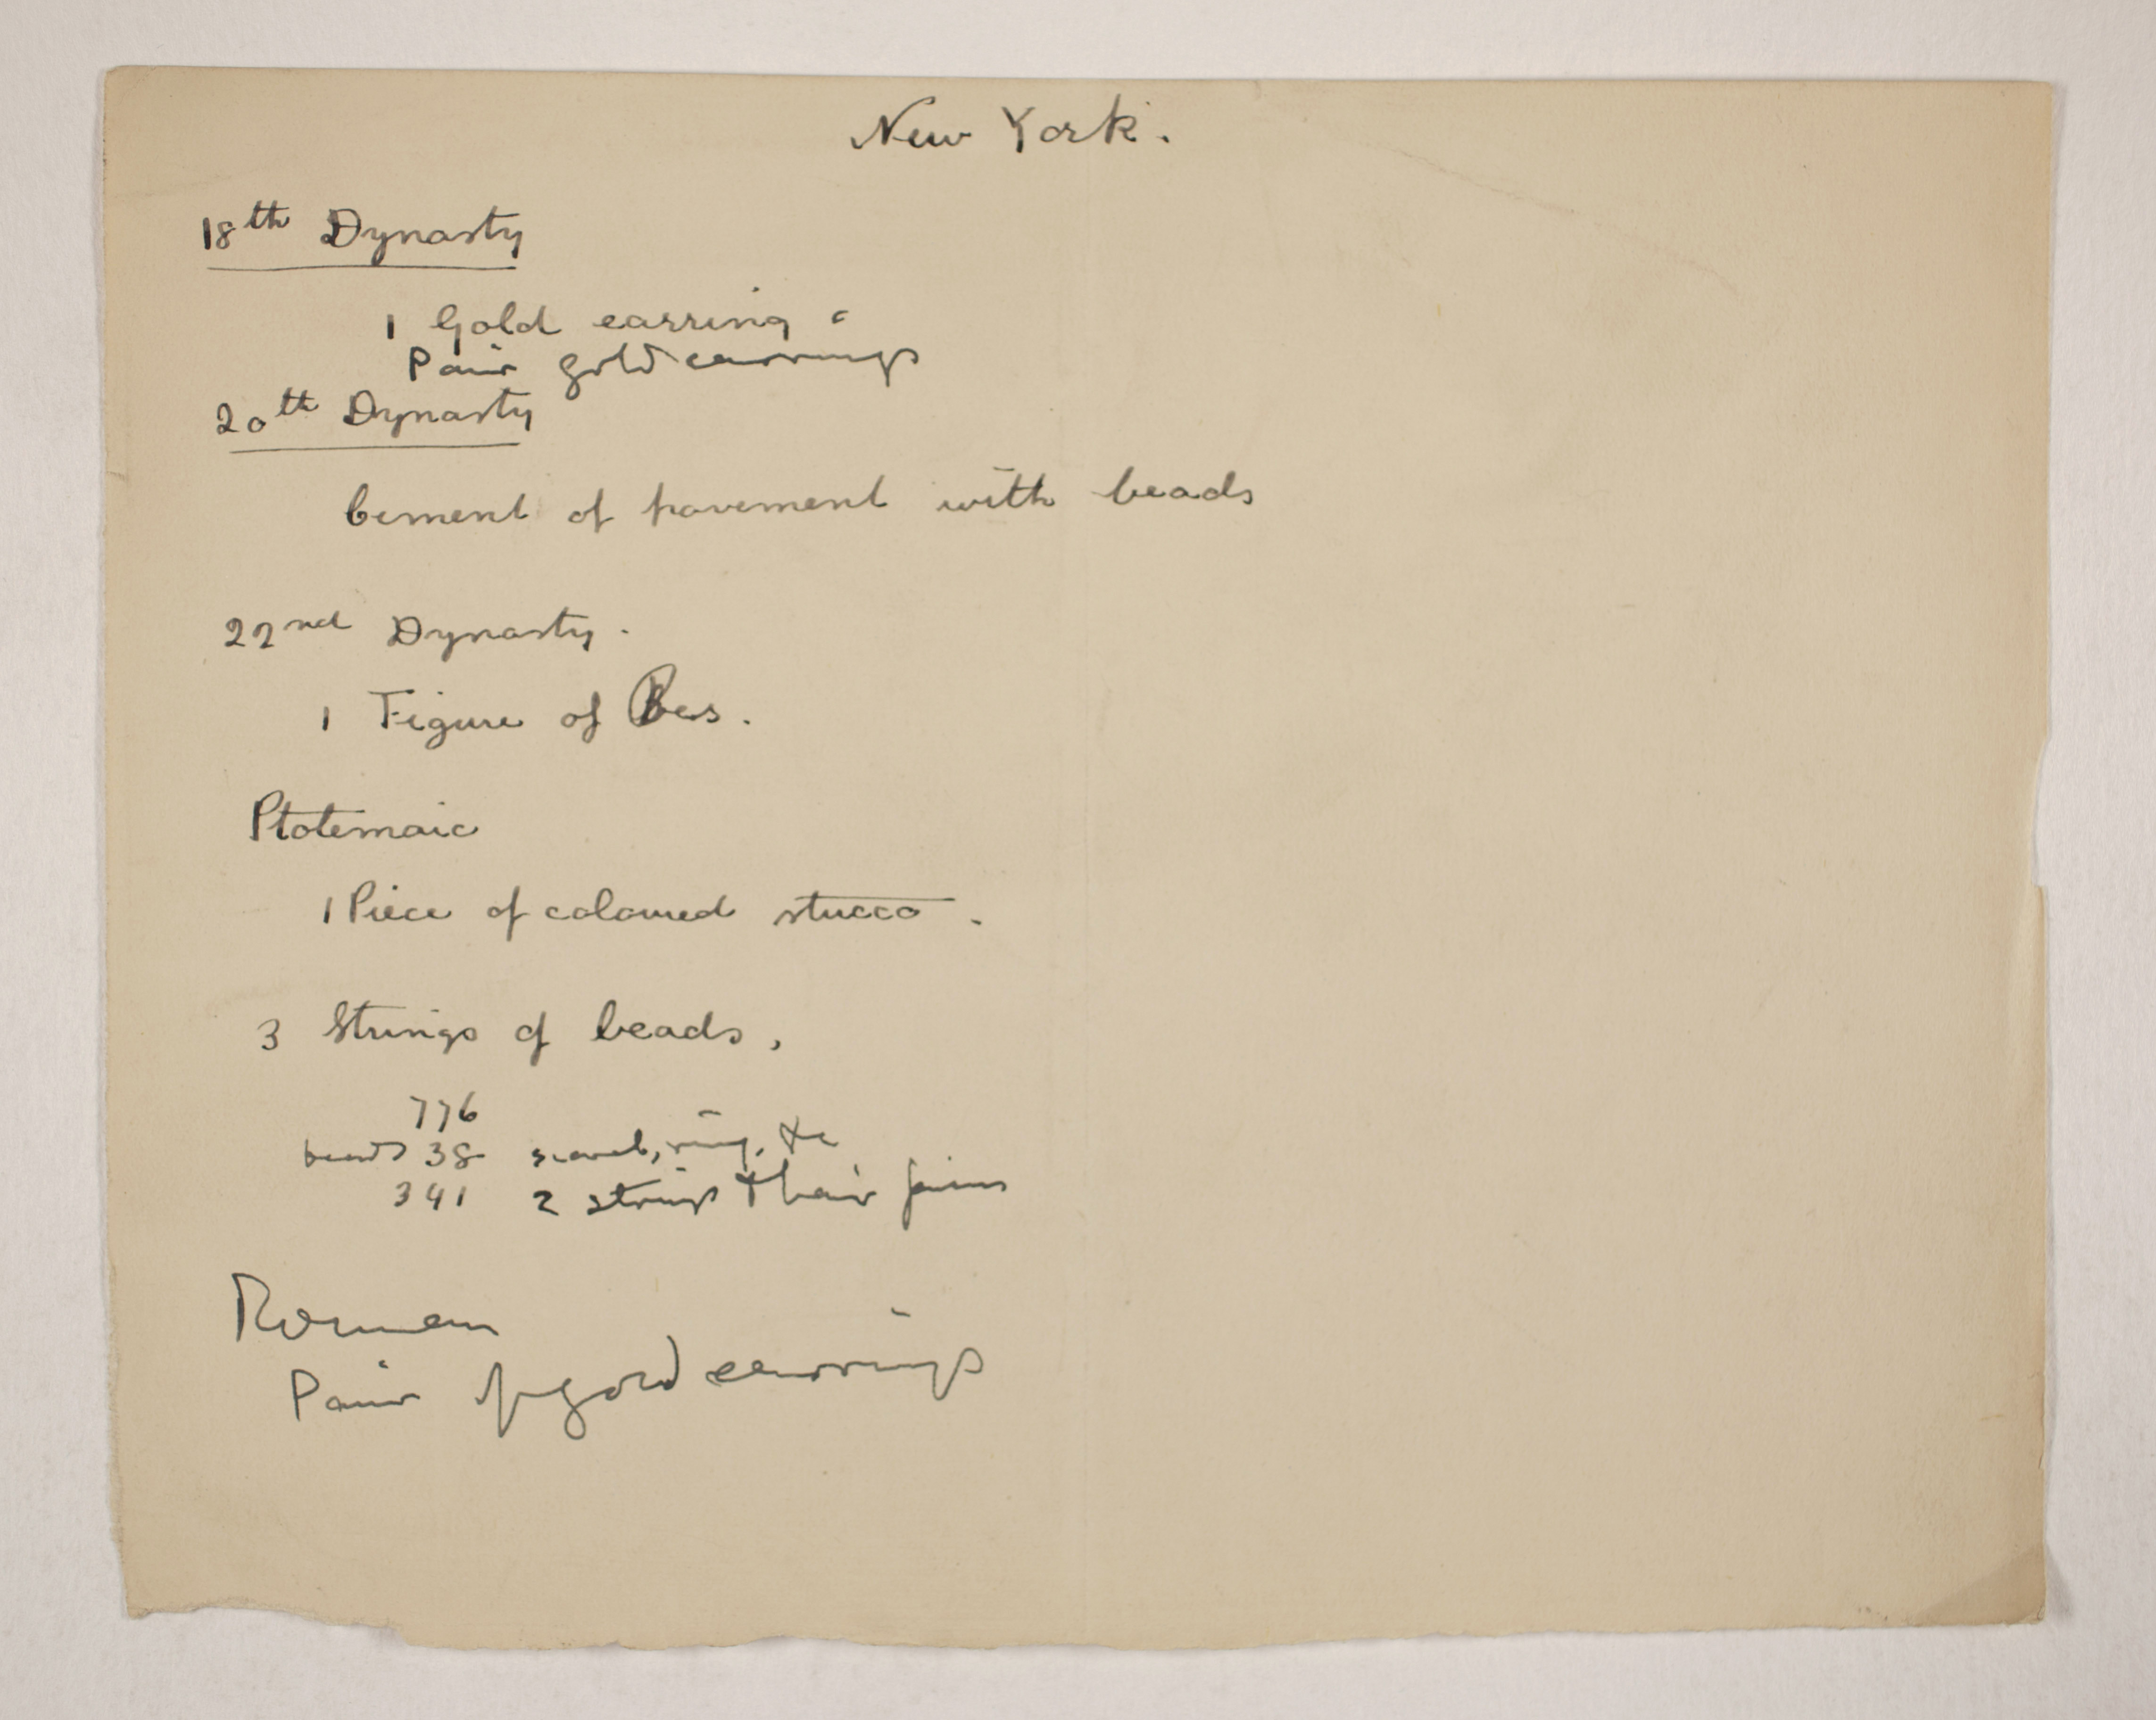 New York.
18th Dynasty
1 Gold earring
Pair gold earrings
20th Dynasty
Cement of pavement with beads
22nd Dynasty.
1 Figure of Bes.
Ptolemaic
1 Piece of coloured stucco.
3 Strings of beads,
776
beads 38 scarab, ring, &c
341 2 strings & hair pins
Roman
Pair of gold earrings